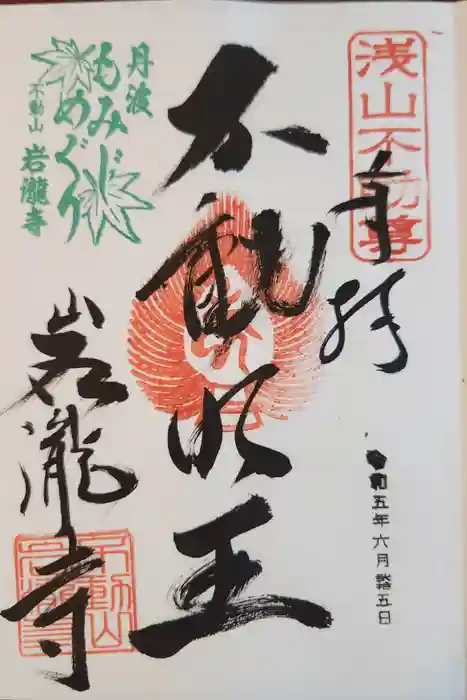 浅山不動尊
奉拝
令和五年六月 五日
不動明王
丹波
もみじめぐり
不動山
岩瀧寺
岩瀧寺
不動山